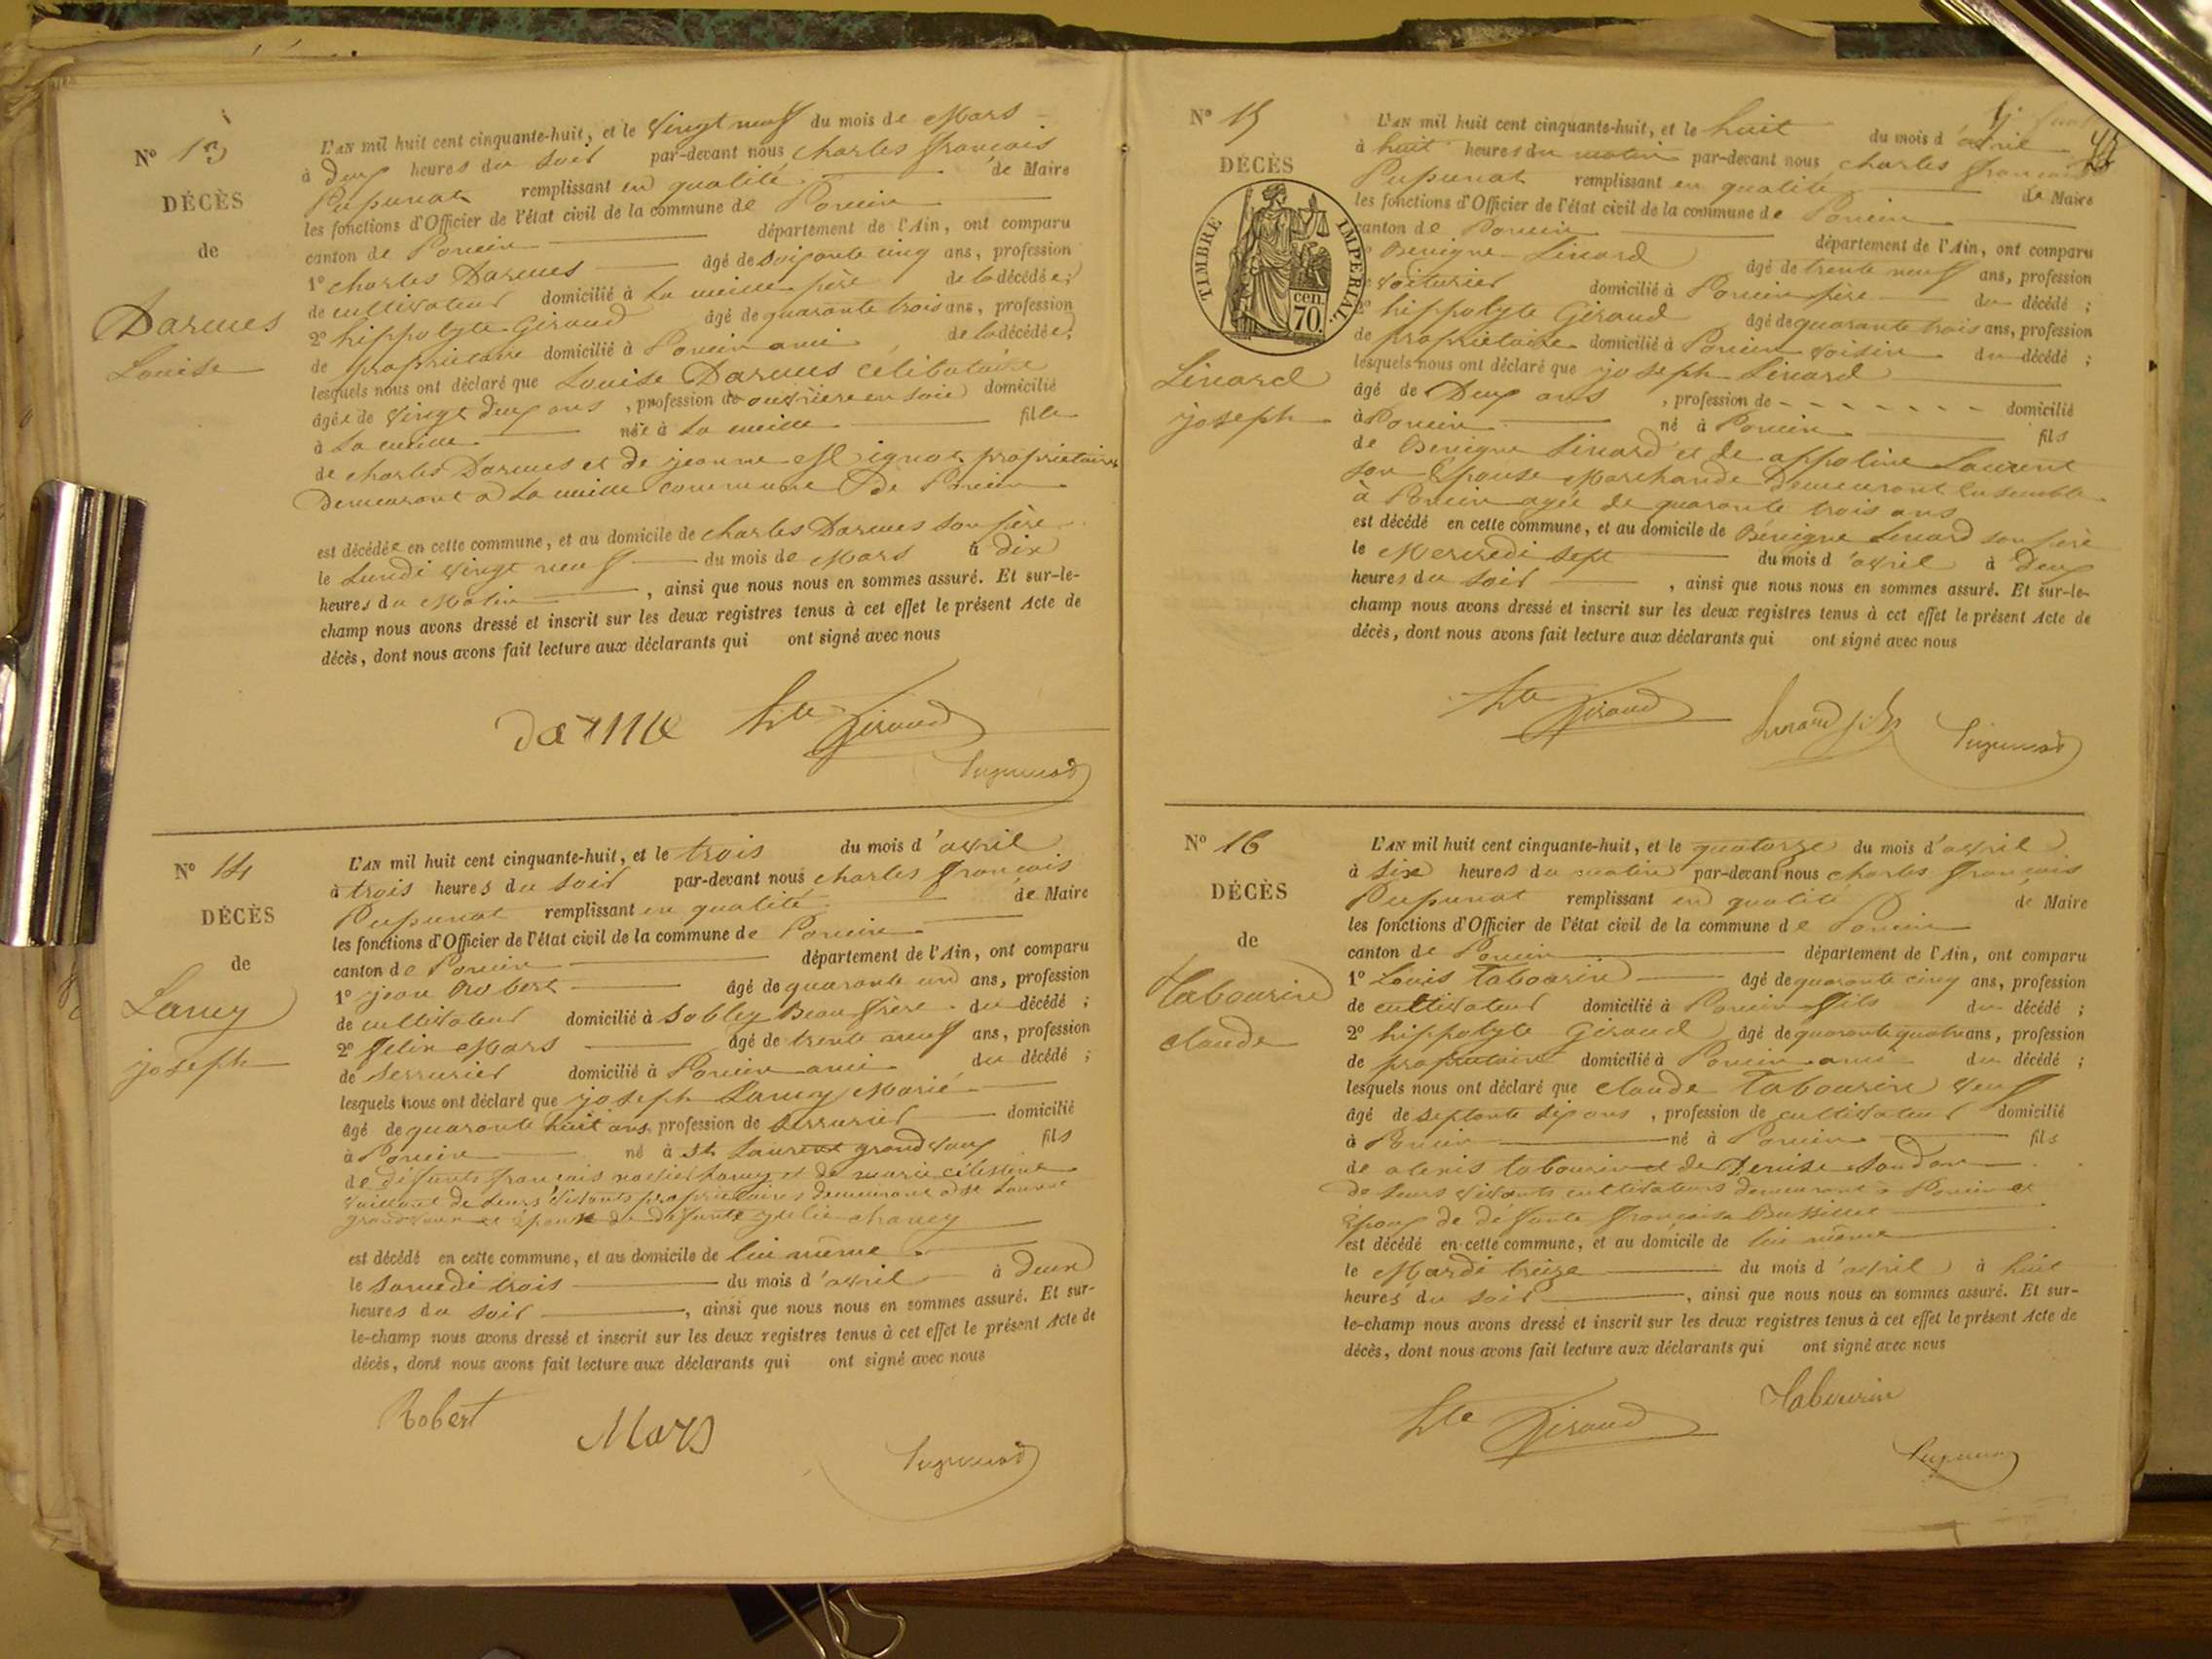 N° 13
DÉCÈS
de
Darmes
Louise
L'AN mil huit cent cinquante-huit, et le Vingt neuf du mois de Mars
à deux heures du soir par-devant nous Charles françois
Pupunat remplissant en qualité de Maire
les fonctions d'Officier de l'état civil de la commune de Poncin
canton de Poncin département de l'Ain, ont comparu
1° Charles Darmes âgé de soixante cinq ans, profession
de cultivateur domicilié à La mille père de la décédée;
2° hippolyte Giraud âgé de quarante trois ans, profession
de propriétaire domicilié à Poncin ami de la décédée;
lesquels nous ont déclaré que Louise Darmes célibataire
âgée de Vingt deux ans, profession de ouvrière en soie domicilié
à La mille née à La mille fille
de Charles Darmes et de jeanne Mignot propriétaires
demeurant à La mille commune de Poncin
est décédée en cette commune, et au domicile de Charles Darmes son père
le Lundi vingt neuf du mois de Mars à dix
heures du Matin, ainsi que nous nous en sommes assuré. Et sur-le-
champ nous avons dressé et inscrit sur les deux registres tenus à cet effet le présent Acte de
décès, dont nous avons fait lecture aux déclarants qui ont signé avec nous
darme hte Giraud
Pupunat
N° 14
DÉCÈS
de
Lamy
joseph
L'AN mil huit cent cinquante-huit, et le trois du mois d'avril
à trois heures du soir par-devant nous Charles françois
Pupunat remplissant en qualité de Maire
les fonctions d'Officier de l'état civil de la commune de Poncin
canton de Poncin département de l'Ain, ont comparu
1° jean Robert âgé de quarante un ans, profession
de cultivateur domicilié à Sobley Beau frère du décédé;
2° félix Mars âgé de trente neuf ans, profession
de serrurier domicilié à Poncin ami du décédé;
lesquels nous ont déclaré que joseph Lamy Marié
âgé de quarante huit ans, profession de serrurier domicilié
à Poncin né à St Laurent grandvaux fils
de défunts françois Lamy et de marie célestine
de leurs vivants propriétaires demeurant à St Laurent
grandvaux et époux de défunte julie
est décédé en cette commune, et au domicile de lui même
le samedi trois du mois d'avril à deux
heures du soir, ainsi que nous nous en sommes assuré. Et sur-
le-champ nous avons dressé et inscrit sur les deux registres tenus à cet effet le présent Acte de
décès, dont nous avons fait lecture aux déclarants qui ont signé avec nous
Robert Mars
Pupunat
N° 15
DÉCÈS
TIMBRE IMPERIAL
cen.
70.
Linard
joseph
L'AN mil huit cent cinquante-huit, et le huit du mois d'avril
à huit heures du matin par-devant nous Charles françois
Pupunat remplissant en qualité de Maire
les fonctions d'Officier de l'état civil de la commune de Poncin
canton de Poncin département de l'Ain, ont comparu
Benigne Linard âgé de trente neuf ans, profession
voiturier domicilié à Poncin père du décédé;
2° hippolyte Giraud âgé de quarante trois ans, profession
de propriétaire domicilié à Poncin voisin du décédé;
lesquels nous ont déclaré que joseph Linard
âgé de Deux ans, profession de - - - - - - - domicilié
à Poncin né à Poncin fils
de Benigne Linard et de appoline Laurent
son Epouse Marchande demeurant ensemble
à Poncin agée de quarante trois ans
est décédé en cette commune, et au domicile de Bénigne Linard son père
le Mercredi sept du mois d'avril à deux
heures du soir, ainsi que nous nous en sommes assuré. Et sur-le-
champ nous avons dressé et inscrit sur les deux registres tenus à cet effet le présent Acte de
décès, dont nous avons fait lecture aux déclarants qui ont signé avec nous
hte Giraud Linard Pupunat
N° 16
DÉCÈS
de
Tabourin
Claude
L'AN mil huit cent cinquante-huit, et le quatorze du mois d'avril
à six heures du matin par-devant nous Charles françois
Pupunat remplissant en qualité de Maire
les fonctions d'Officier de l'état civil de la commune de Poncin
canton de Poncin département de l'Ain, ont comparu
1° Louis Tabourin âgé de quarante cinq ans, profession
de cultivateur domicilié à Poncin fils du décédé;
2° hippolyte Giraud âgé de quarante quatre ans, profession
de propriétaire domicilié à Poncin ami du décédé;
lesquels nous ont déclaré que Claude Tabourin veuf
âgé de septante six ans, profession de cultivateur domicilié
à Poncin né à Poncin fils
de alexis tabourin et de Denise
de leurs vivants cultivateurs demeurant à Poncin et
Epoux de défunte françoise
est décédé en cette commune, et au domicile de lui même
le Mardi treize du mois d'avril à huit
heures du soir, ainsi que nous nous en sommes assuré. Et sur-
le-champ nous avons dressé et inscrit sur les deux registres tenus à cet effet le présent Acte de
décès, dont nous avons fait lecture aux déclarants qui ont signé avec nous
hte Giraud Tabourin
Pupunat